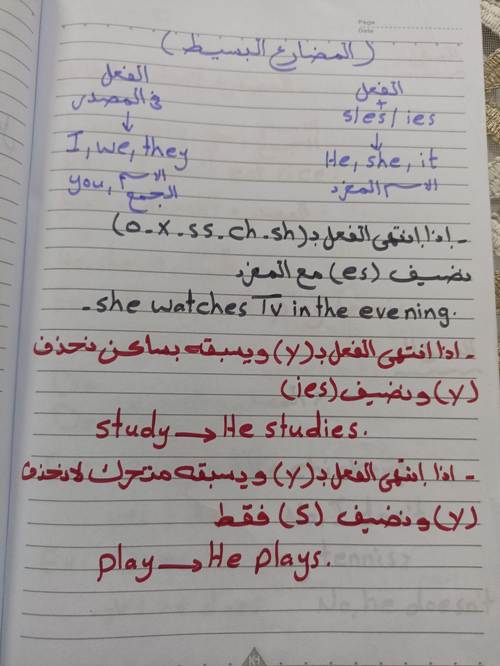 Page
Date
(المضارع البسيط)
الفعل
+
s/es/ies
↓
He, she, it
الاسم المفرد
الفعل
في المصدر
↓
I, we, they
you, الاسم
الجمع
- إذا إنتهى الفعل بـ (o-x-ss-ch-sh)
نضيف (es) مع المفرد
- she watches TV in the evening.
- اذا انتهى الفعل بـ (y) ويسبقه بساكن نحذف
(y) ونضيف (ies)
study → He studies.
- اذا إنتهى الفعل بـ (y) ويسبقه متحرك لا نحذف
(y) ونضيف (s) فقط
play → He plays.